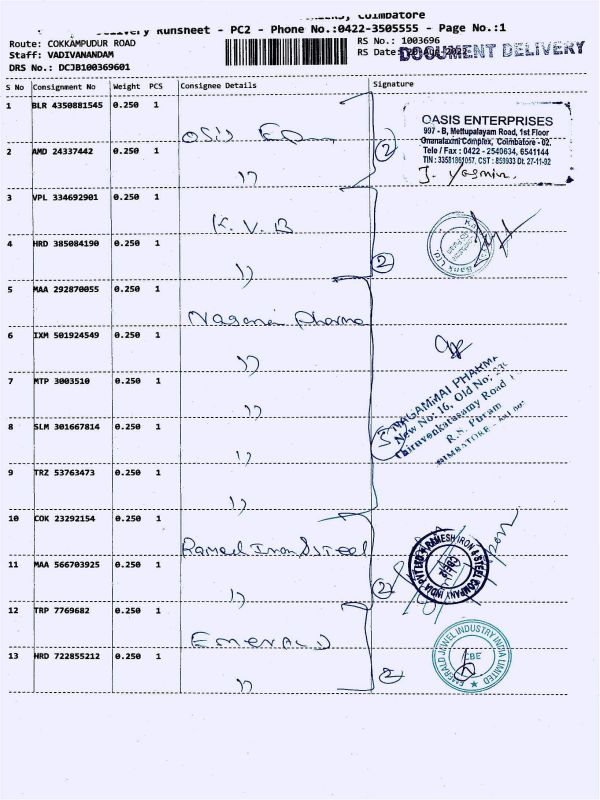 Coimbatore
Delivery Runsheet - PC2 - Phone No.:0422-3505555 - Page No.:1
Route: COKKAMPUDUR ROAD
RS No.: 1003696
Staff: VADIVANANDAM
RS Date:
DOCUMENT DELIVERY
DRS No.: DCJB100369601
S No Consignment No Weight PCS Consignee Details Signature
1 BLR 4350881545 0.250 1
OASIS ENTERPRISES
907 - B, Mettupalayam Road, 1st Floor
Gnanalaxmi Complex, Coimbatore - 02.
Tele / Fax : 0422 - 2540634, 6541144
TIN : 33581861057, CST : 859933 Dt. 27-11-92
J. Yasmin.
2 AMD 24337442 0.250 1 )) 2
3 VPL 334692901 0.250 1 K. V. B
4 HRD 385084190 0.250 1 )) 2
5 MAA 292870055 0.250 1 Nagamai Pharma
6 IXM 501924549 0.250 1 ))
7 MTP 3003510 0.250 1 ))
NAGAMMAI PHARMA
New No: 16, Old No:
Thiruvenkatasamy Road
R.S. Puram
8 SLM 301667814 0.250 1 )) 5
9 TRZ 53763473 0.250 1 ))
10 COK 23292154 0.250 1 Ramesh Iron & Steel
RAMESH IRON & STEEL COMPANY INDIA PVT LTD
11 MAA 566703925 0.250 1 )) 2
12 TRP 7769682 0.250 1 EMERALD
EMERALD JEWEL INDUSTRY INDIA LIMITED
CBE
13 HRD 722855212 0.250 1 )) 2